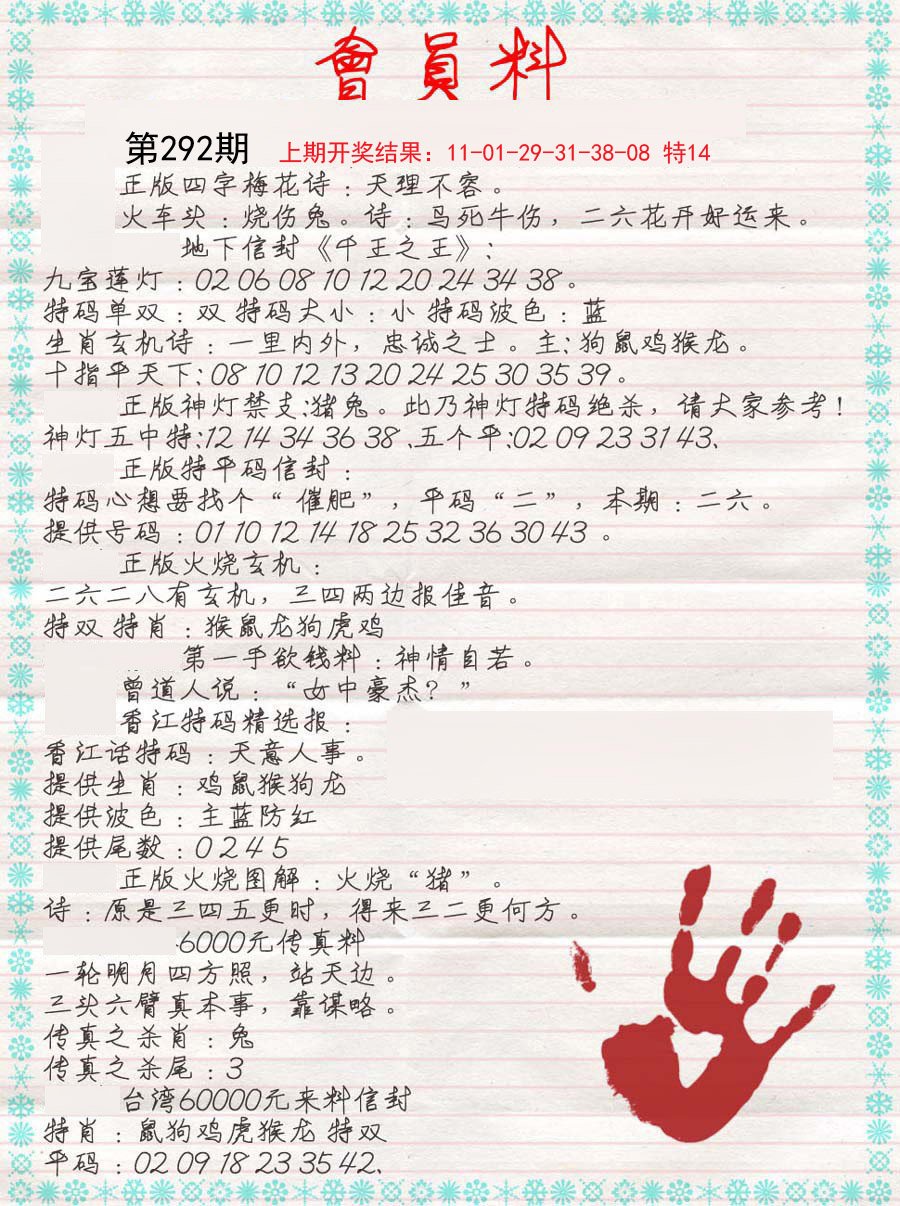 會員料
第292期 上期开奖结果：11-01-29-31-38-08 特14
正版四字梅花诗：天理不容。
火车头：烧伤兔。诗：鸟死牛伤，二六花开好运来。
地下信封《千王之王》：
九宝莲灯：02 06 08 10 12 20 24 34 38。
特码单双：双 特码大小：小 特码波色：蓝
生肖玄机诗：一里内外，忠诚之士。主：狗鼠鸡猴龙。
十指平天下：08 10 12 13 20 24 25 30 35 39。
正版神灯禁支：猪兔。此乃神灯特码绝杀，请大家参考！
神灯五中特：12 14 34 36 38、五个平：02 09 23 31 43、
正版特平码信封：
特码心想要找个“催肥”，平码“二”，本期：二六。
提供号码：01 10 12 14 18 25 32 36 30 43 。
正版火烧玄机：
二六二八有玄机，三四两边报佳音。
特双 特肖：猴鼠龙狗虎鸡
第一手欲钱料：神情自若。
曾道人说：“女中豪杰？”
香江特码精选报：
香江话特码：天意人事。
提供生肖：鸡鼠猴狗龙
提供波色：主蓝防红
提供尾数：0 2 4 5
正版火烧图解：火烧“猪”。
诗：原是三四五更时，得来三二更何方。
6000元传真料
一轮明月四方照，站天边。
三头六臂真本事，靠谋略。
传真之杀肖：兔
传真之杀尾：3
台湾60000元来料信封
特肖：鼠狗鸡虎猴龙 特双
平码：02 09 18 23 35 42、